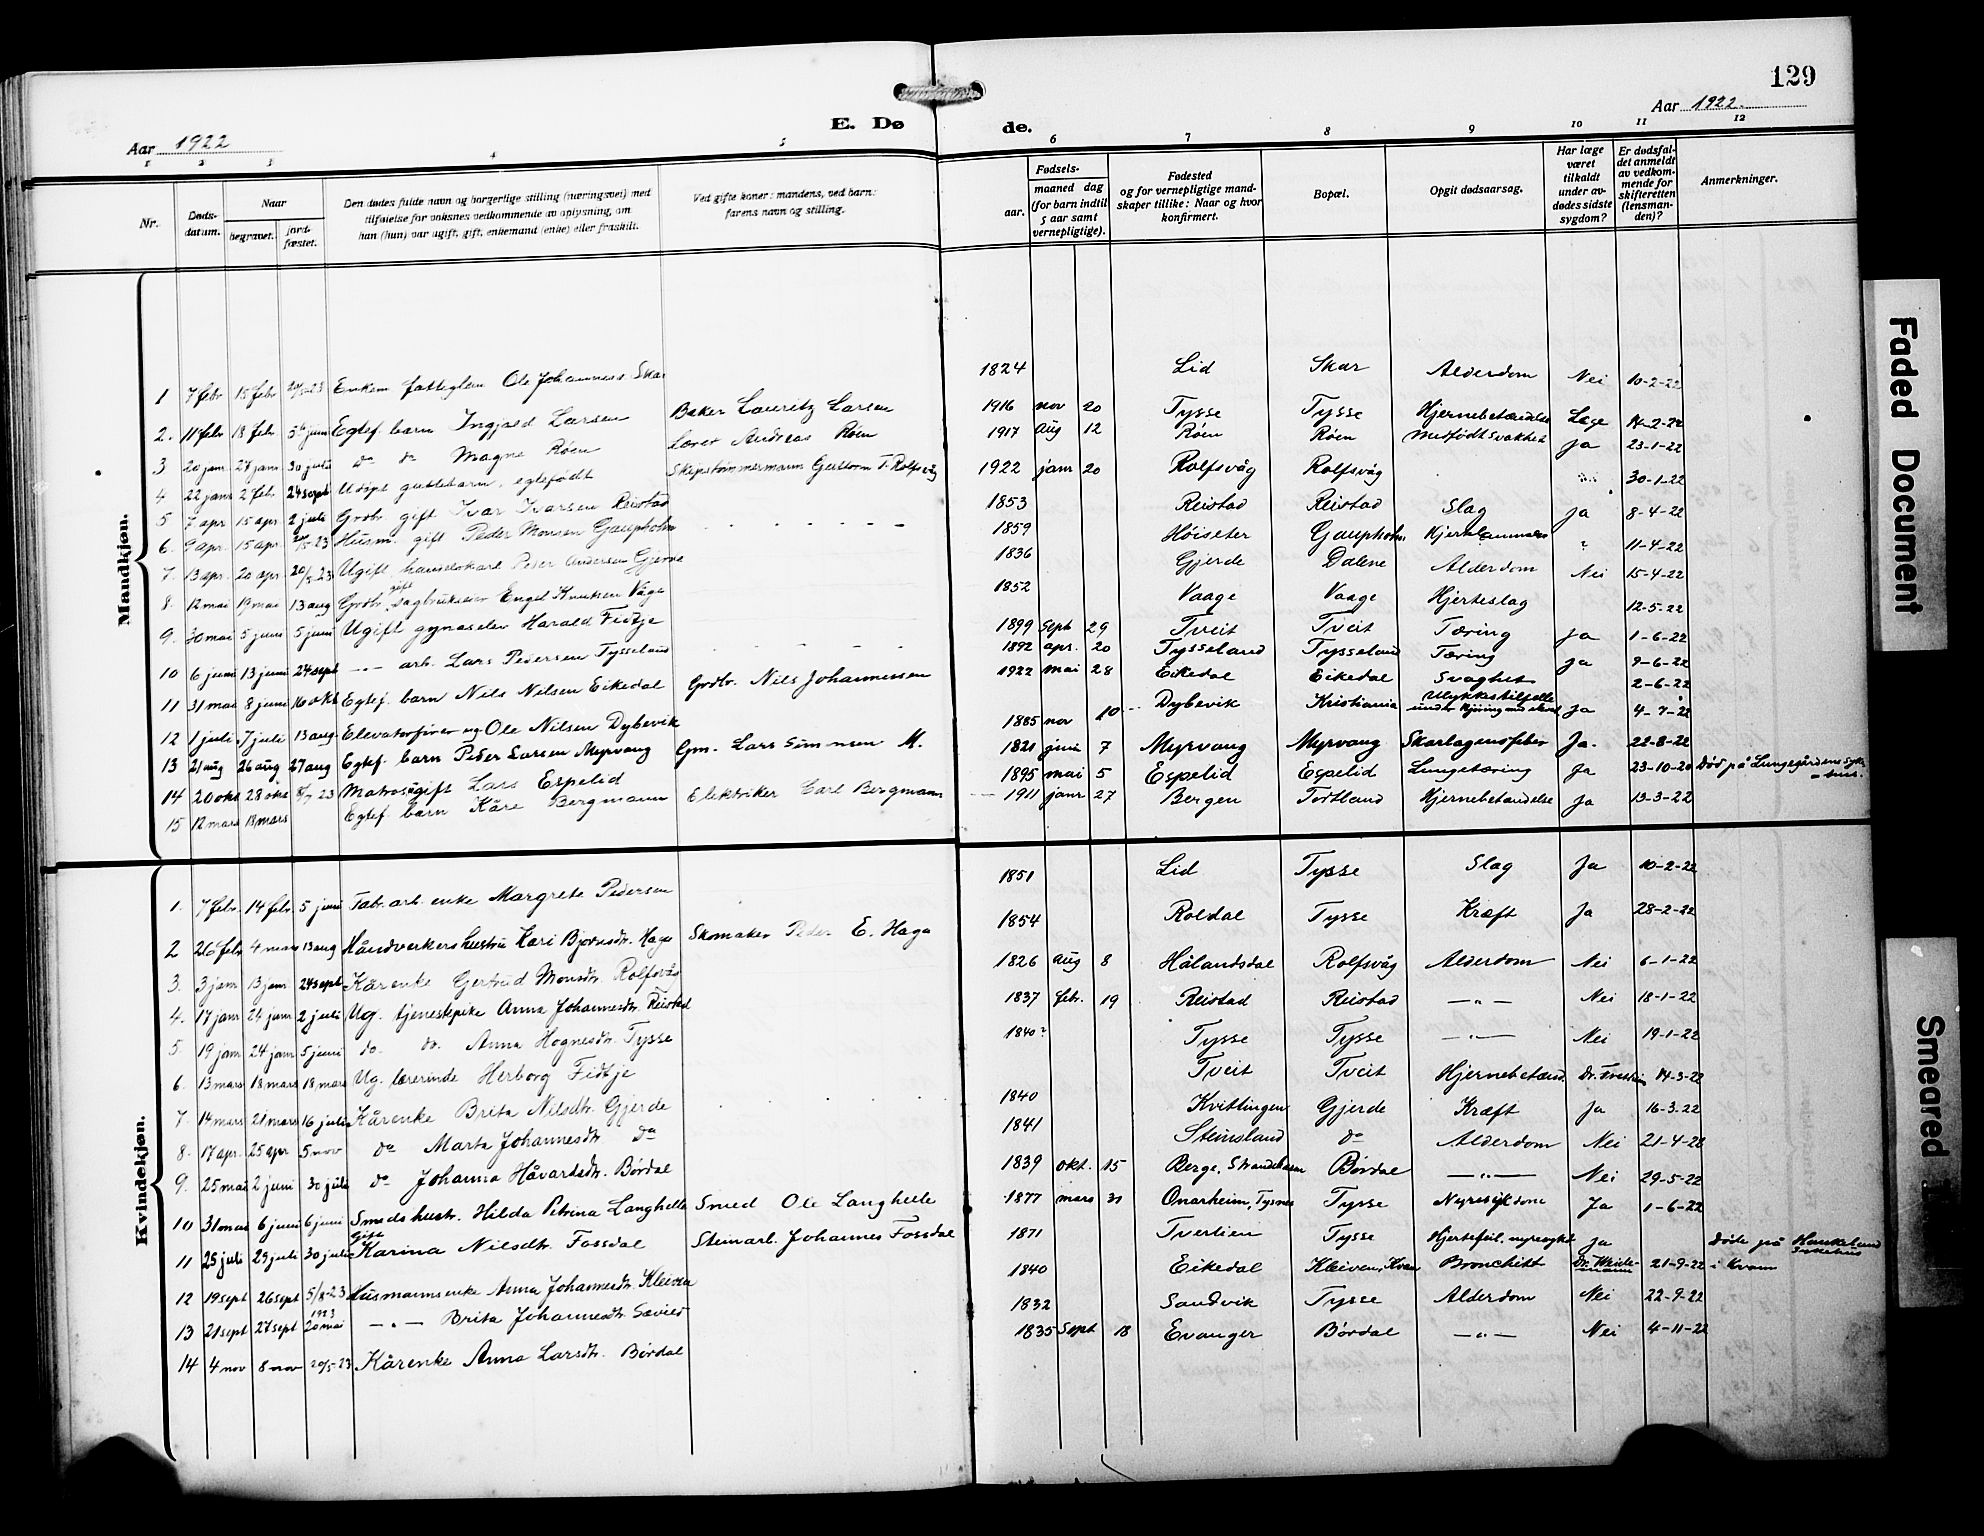 129
Aar 1922
E. Dø de.
Aar 1922.
1 2 3 4 5 6 7 8 9 10 11 12
Nr.
Døds-datum.
Naar
begravet.
jord-fæstet.
Den dødes fulde navn og borgerlige stilling (næringsvei) med
tilføielse for voksnes vedkommende av oplysning, om
han (hun) var ugift, gift, enkemand (enke) eller fraskilt.
Ved gifte koner: mandens, ved barn:
farens navn og stilling.
Fødsels-
aar.
maaned dag
(for barn indtil
5 aar samt
vernepligtige).
Fødested
og for vernepligtige mand-
skaper tillike: Naar og hvor
konfirmert.
Bopæl.
Opgit dødsaarsag.
Har læge
været
tilkaldt
under av-
dødes sidste
sygdom?
Er dødsfal-
det anmeldt
av vedkom-
mende for
skifteretten
(lensman-
den)?
Anmerkninger.
Mandkjøn.
1 7 febr 15 febr 20/5-23 Enkem fattiglem Ole Johanness. Skar 1824 Lid Skar Alderdom Nei 10-2-22
2. 11 febr 18 febr 5te juni Egtef. barn Ingjald Larsen Baker Lauritz Larsen 1916 nov 20 Tysse Tysse Hjernebetændelse Læge 14-2-22
3 20 jan 27 jan 30 juli do do Magne Røen Lærer Andreas Røen 1917 aug 12 Røen Røen Medfødt svakhet Ja 23-1-22
4 22 jan 2 febr 24 sept Udøpt guttebarn, egtefødt Skipstømmermann Guttorm T. Rolfsvåg 1922 janr 20 Rolfsvåg Rolfsvåg 30-1-22
5 7 apr 15 apr 2 juli Grdbr. gift Ivar Ivarsen Reistad 1853 Reistad Reistad Slag Ja 8-4-22
6. 9 apr. 15 apr. 20/5-23 Husm. gift Peder Monsen Gaupholm 1859 Høiseter Gaupholm 11-4-22
7. 13 apr. 20 apr. 20/5-23 Ugift handelskarl Peder Andersen Gjerde 1836 Gjerde Dalene Alderdom Nei 15-4-22
8. 12 mai 19 mai 13 aug Grdbr. gift sagbrukseier Engel Knutsen Våge 1852 Vaage Vaage Hjerteslag 12-5-22
9. 30 mai 5 juni 5 juni Ugift gymnaselev Harald Fidtje 1899 Sept 29 Tveit Tveit Tæring Ja 1-6-22
10 6 juni 13 juni 24 sept —"— arb. Lars Pedersen Tysseland 1892 apr. 20 Tysseland Tysseland Tæring Ja 9-6-22
11 31 mai 8 juni 16 okt Egtef. barn Nils Nilsen Eikedal Grdbr. Nils Johannessen 1922 mai 28 Eikedal Eikedal Svaghet 2-6-22
12 1 juli 7 juli 13 aug Elevatorfører ug Ole Nilsen Dybevik 1885 nov 10 Dybevik Kristiania Ulykkestilfælle under Ja 4-7-22
13 21 aug 26 aug 27 aug Egtef. barn Peder Larsen Myrvang Gm. Lars Simonsen M. 1821 juni 7 Myrvang Myrvang Skarlagensfeber Ja. 22-8-22
14 20 okt 28 okt Matros ugift Lars Espelid 1895 mai 5 Espelid Espelid Lungetæring Ja 23-10-20 Død på Lungegårdens syke-hus.
15 12 mars 18 mars Egtef. barn Kåre Bergmann Elektriker Carl Bergmann 1911 janr 27 Bergen Tortland Hjernebetændelse Ja 13-3-22
Kvindekjøn.
1. 7 febr 14 febr 5 juni Fabr.arb. enke Margrete Pedersen 1851 Lid Tysse Slag Ja 10-2-22
2 26 febr 4 mars 13 aug Håndverkers hustru Kari Bjørnsdtr. Haga Skomaker Peder E. Haga 1854 Roldal Tysse Kræft Ja 28-2-22
3. 3 janr 13 janr 24 sept Kårenke Gertrud Monsdtr. Rolfsvåg 1826 aug 8 Hålandsdal Rolfsvåg Alderdom Nei 6-1-22
4. 17 janr 24 janr 2 juli Ug. tjenestepike Anna Johannesdtr. Reistad 1837 febr. 19 Reistad Reistad —"— Nei 18-1-22
5. 19 janr 24 janr 5 juni do do. Anna Hognesdtr. Tysse 1840? Tysse Tysse —"— Nei 19-1-22
6. 13 mars 18 mars 18 mars Ug. lærerinde Herborg Fidtje Tveit Tveit Hjernebetænd. 14-3-22
7. 14 mars 21 mars 16 juli Kårenke Brita Nilsdtr. Gjerde 1840 Kvittingen Gjerde Kræft Ja 16-3-22
8. 17 apr. 25 apr 5 nov do Marta Johannesdtr. do 1841 Steinsland do Alderdom Nei 21-4-22
9. 25 mai 2 juni 30 juli do Johanna Håvardsdtr. Børdal 1839 okt. 15 Berge, Strandebarm Børdal —"— Nei 29-5-22
10 31 mai 6 juni 6 juni Smeds hustr. Hilda Petrina Langhelle Smed Ole Langhelle 1877 mars 31 Onarheim, Tysnes Tysse Nyresykdom Ja 1-6-22
11 25 juli 29 juli 30 juli Gift Karina Nilsdtr. Fossdal Steinarb. Johannes Fossdal 1871 Tverlien Tysse Hjertefeil, nyresykd Ja Døde på Haukeland Sykehus
12 19 sept 26 sept 5/8-23 Husmannsenke Anna Johannesdtr. Kleiven 1840 Eikedal Kleiven, Kvam Bronchitt Dr. Weide-mann 21-9-22 i Kvam
13 21 sept 27 sept 1923 20 mai —"— Brita Johannesdtr. Sævild 1832 Sandvik Tysse Alderdom Nei 22-9-22
14 4 nov 8 nov 20/5-23 Kårenke Anna Larsdtr. Børdal 1835 Sept 18 Evanger Børdal —"— Nei 4-11-22
Faded Document
Smeared